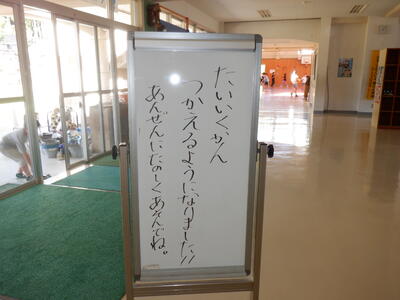 たいいくかん
つかえるようになりました!!
あんぜんにたのしくあそんでね。